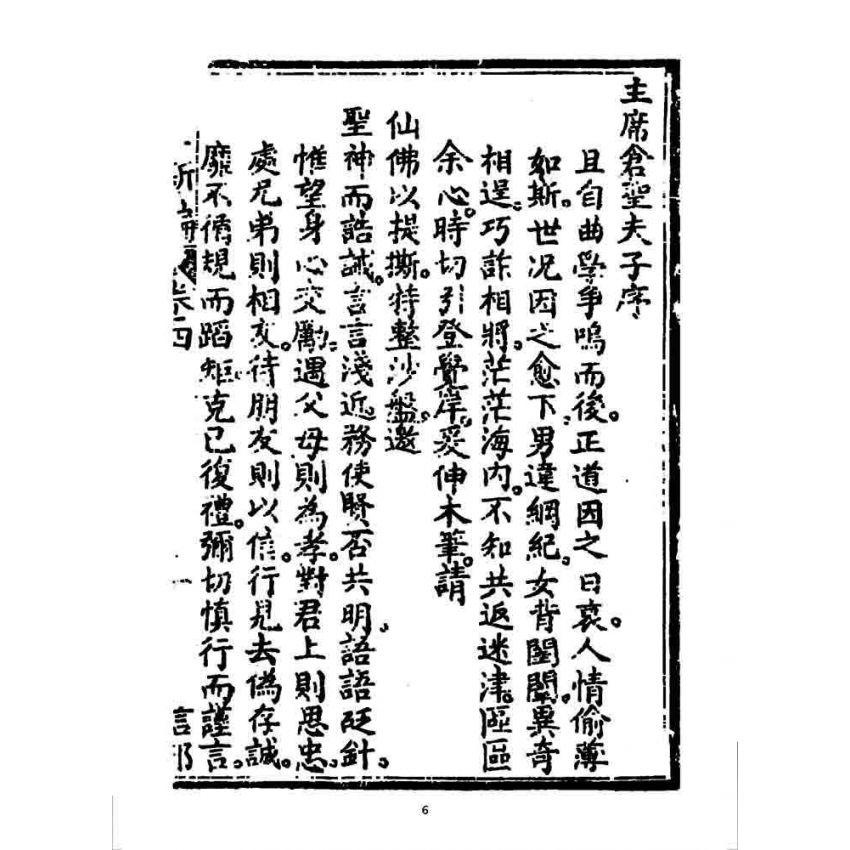 主席倉聖夫子序
且自曲學爭鳴而後。正道因之日衰。人情偷薄
如斯。世况因之愈下男違綱紀。女背閨閫。異奇
相逞。巧詐相將。茫茫海内。不知共返迷津。區區
余心。時切引登覺岸。爰伸木筆。請
仙佛以提撕。特整沙盤。邀
聖神而誥誡。言言淺近。務使賢否共明。語語砭針。
惟望身心交勵。遇父母則為孝。對君上則思忠。
處兄弟則相友。待朋友則以信。行見去僞存誠。
靡不循規而蹈矩。克己復禮。彌切慎行而謹言。
卷四 一 言部
6